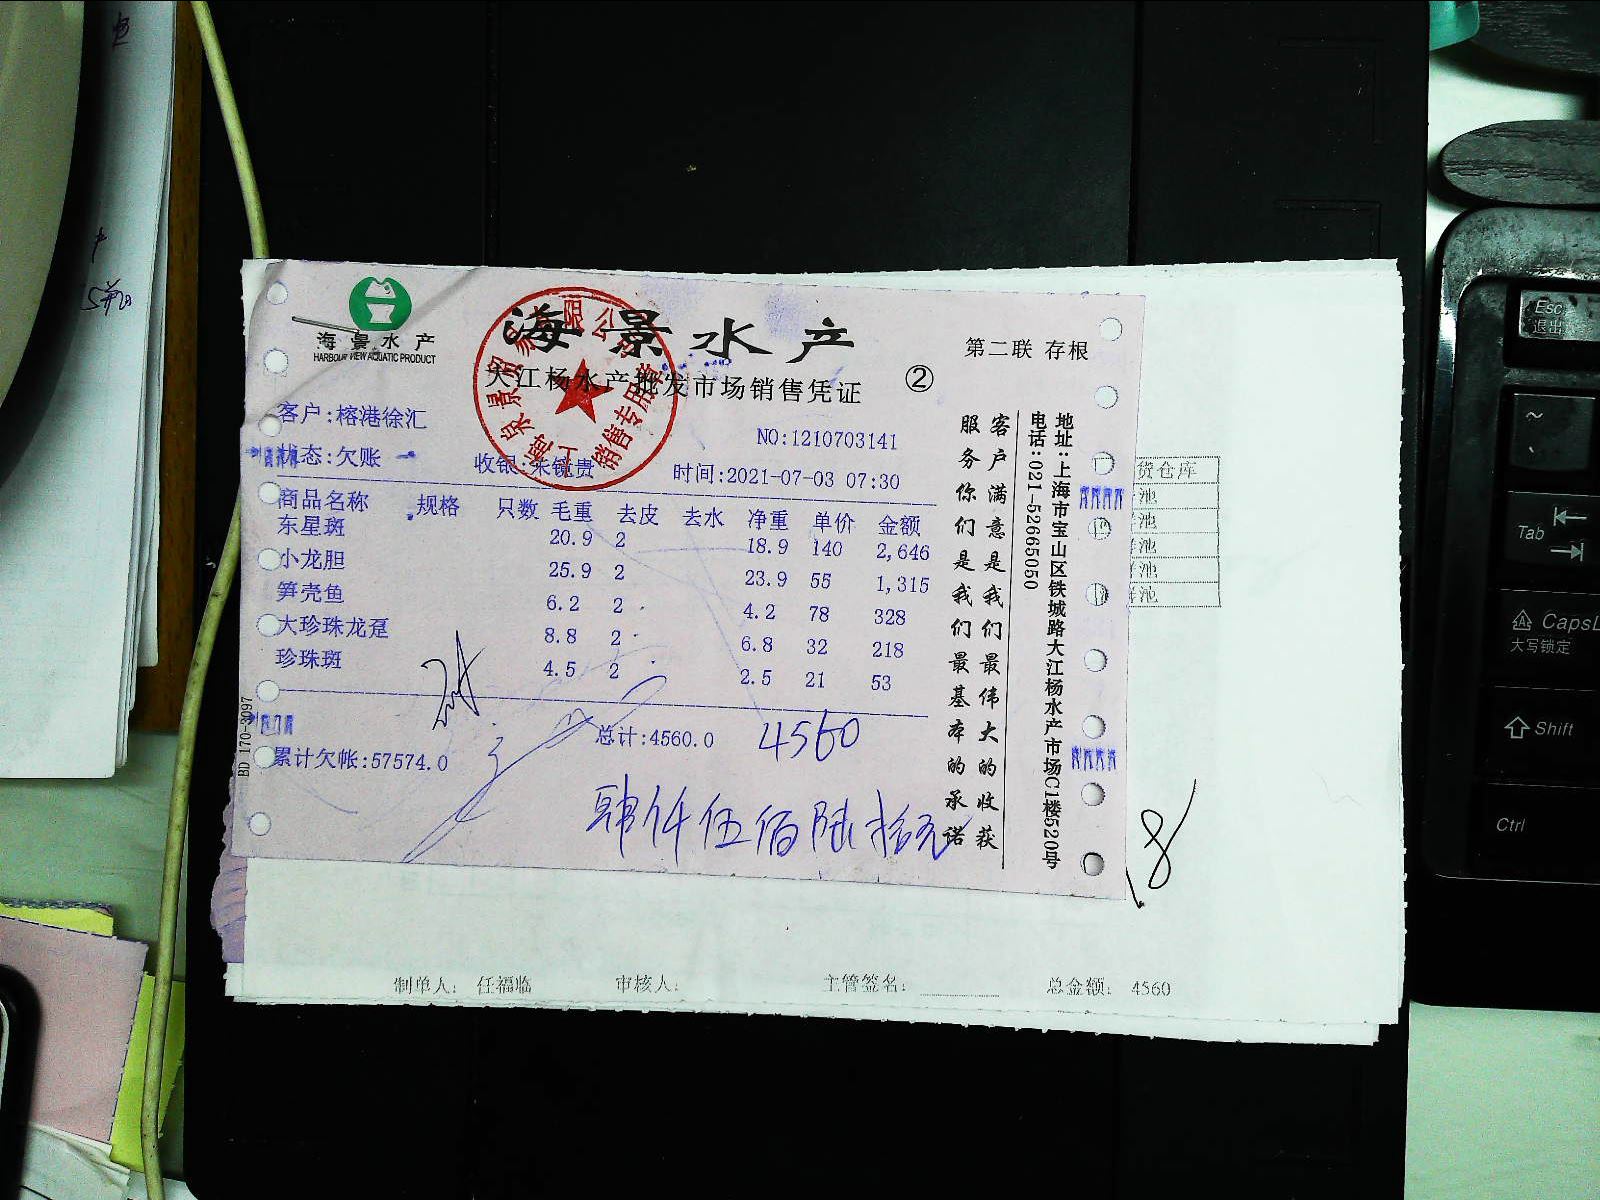 海景水产
HARBOUR VIEW AQUATIC PRODUCT
海景水产
大江杨水产批发市场销售凭证 ②
第二联 存根
客户:榕港徐汇
NO:1210703141
状态:欠账
收银:朱镜贵
时间:2021-07-03 07:30
商品名称 规格 只数 毛重 去皮 去水 净重 单价 金额
东星斑 20.9 2 18.9 140 2,646
小龙胆 25.9 2 23.9 55 1,315
笋壳鱼 6.2 2 4.2 78 328
大珍珠龙趸 8.8 2 6.8 32 218
珍珠斑 4.5 2 2.5 21 53
总计:4560.0 4560
累计欠帐:57574.0
肆仟伍佰陆拾元
BD 170-3097
客户满意是我们最伟大的收获
服务你们是我们最基本的承诺
地址:上海市宝山区铁城路大江杨水产市场C1楼520号
电话:021-52665050
销售专用章
货仓库
池
池
池
池
池
制单人: 任福临 审核人: 主管签名: 总金额: 4560
Esc
退出
~
Tab
CapsL
大写锁定
Shift
Ctrl